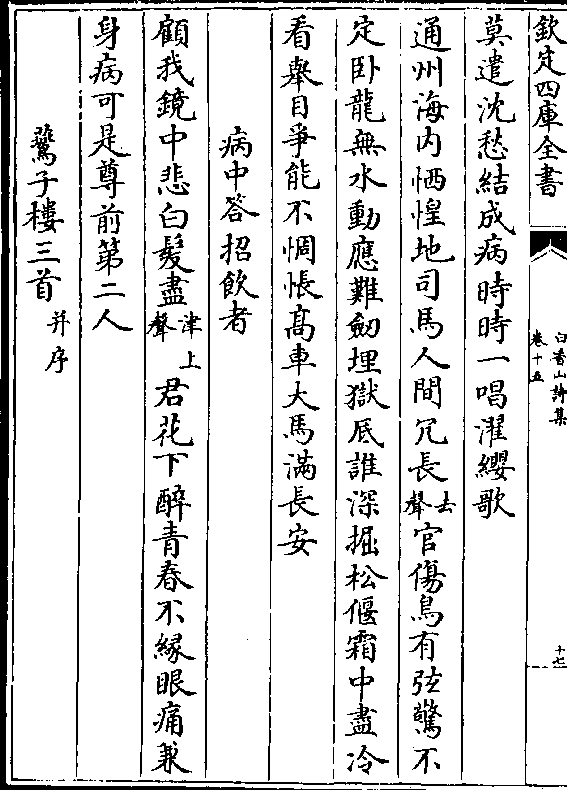 欽定四庫全書
白香山詩集
卷十五
十七
莫遣沈愁結成病時時一唱濯纓歌
通州海内恓惶地司馬人間冗長去聲官傷鳥有弦驚不
定卧龍無水動應難劒埋獄底誰深掘松偃霜中盡冷
看舉目爭能不惆悵髙車大馬滿長安
病中答招飲者
顧我鏡中悲白髮盡津上聲君花下醉青春不緣眼痛兼
身病可是尊前第二人
鷰子樓三首并序